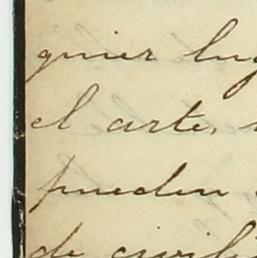 quier lug
el arte,
pueden
de civili